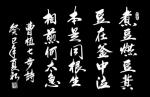 煮豆燃豆萁
豆在釜中泣
本是同根生
相煎何太急
曹植七步诗